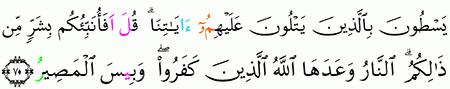 يَسْطُونَ بِالَّذِينَ يَتْلُونَ عَلَيْهِمُۥٓ ءَايَاتِنَا ۗ قُلَ اَفَأُنَبِّئُكُم بِشَرٍّ مِّن
ذَالِكُمُ ۗ النَّارُ وَعَدَهَا اللَّهُ الَّذِينَ كَفَرُواْ ۖ وَبِيسَ الْمَصِيرُ ﴿٧٠﴾